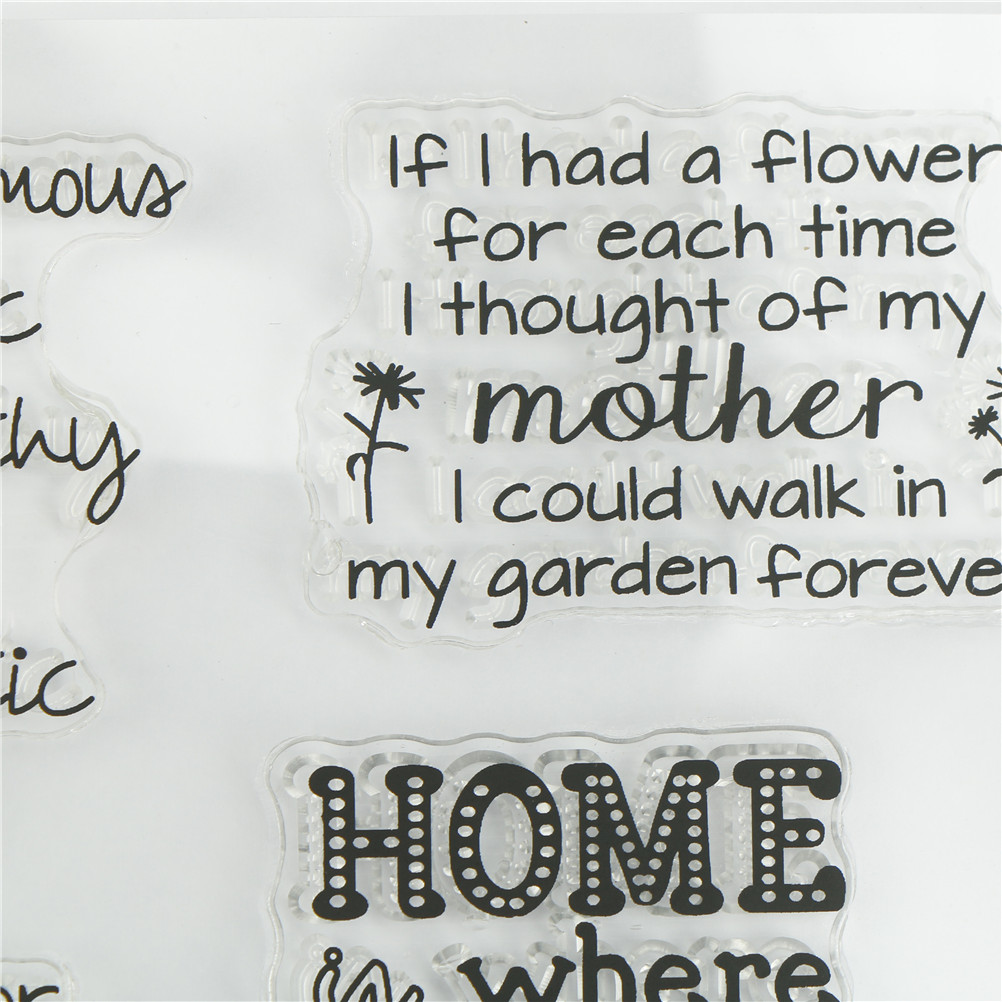 If I had a flower
for each time
I thought of my
mother
I could walk in
my garden foreve
HOME
in where